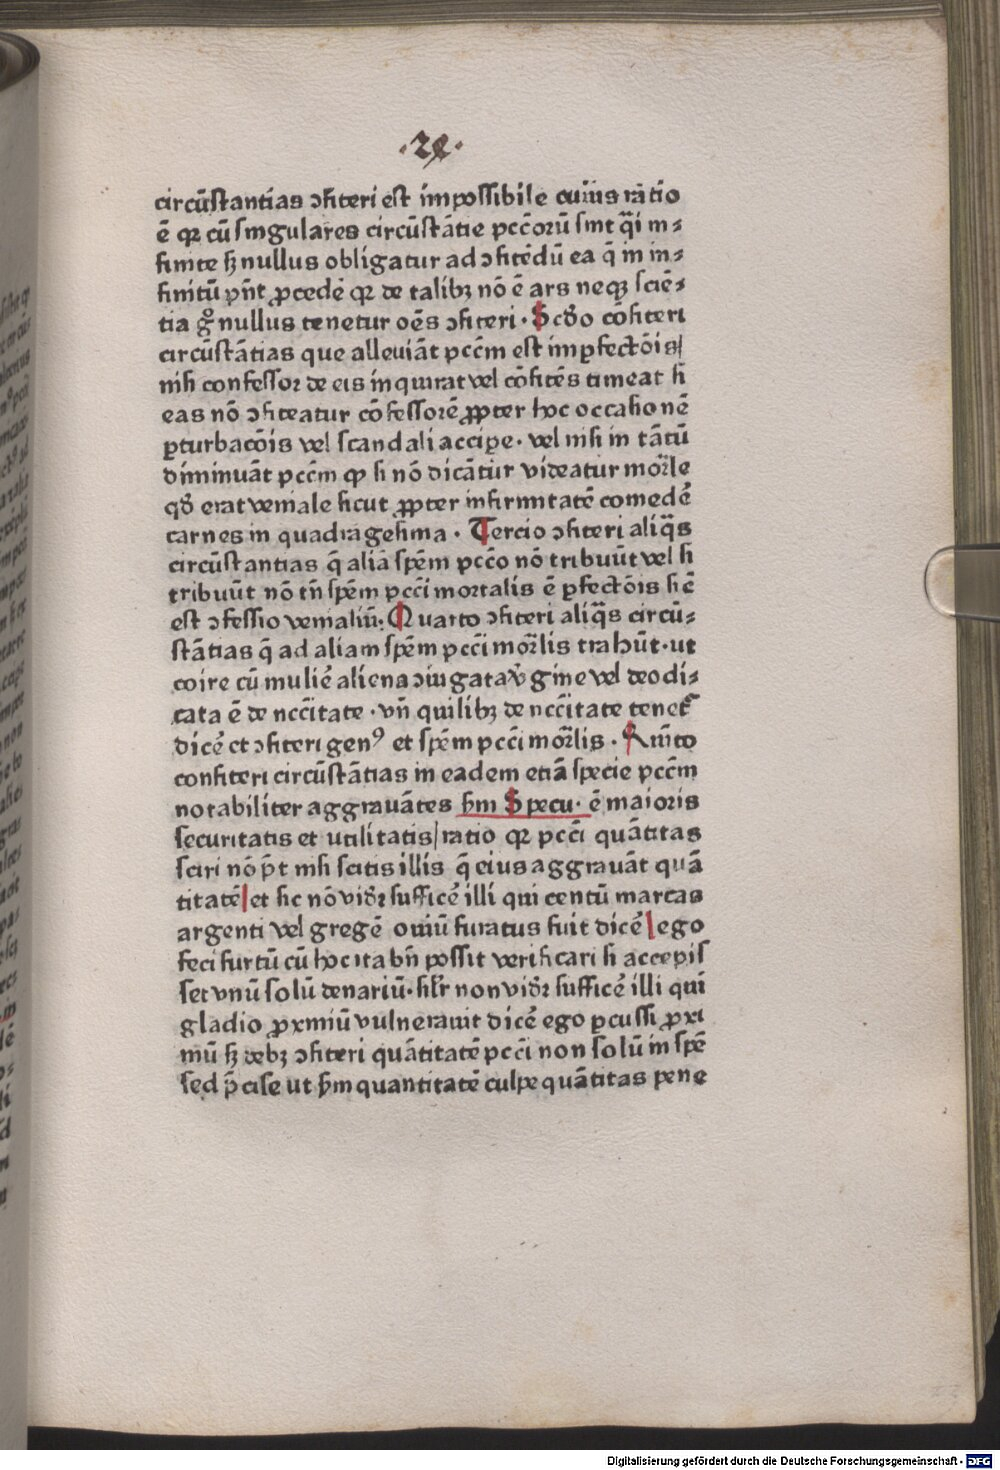 ·24·
circūstantias ↄfiteri est impossibile cuius ratio
ē qꝛ cū singulares circūstātie pccōrū sint q̄i in⸗
finite sꝫ nullus obligatur ad ↄfitēdū ea q̄ in in⸗
finitū pn̄t ꝓcedē qꝛ de talibꝫ nō ē ars neqꝫ sciē⸗
tia gͦ nullus tenetur oēs ↄfiteri · Scd̄o cōfiteri
circūstātias que alleuiāt pccm̄ est imꝑfectōis/
nisi confessor de eis inquirat vel cōfitēs timeat si
eas nō ↄfiteatur cōfessorē ꝓpter hoc occasionē
ꝑturbacōis vel scandali acciꝑe · vel nisi in tātū
diminuāt pccm̄ ꝙ si nō dicātur videatur mor̄le
qd̄ erat veniale sicut ꝓpter infirmitatē comedē
carnes in quadragesima · Tercio ↄfiteri aliq̄s
circūstantias q̄ aliā spēm pccō nō tribuūt vel si
tribuūt nō tn̄ spēm pcci mortalis ē ꝑfectōis si ē
est ↄfessio venialiū: Quarto ↄfiteri aliq̄s circū⸗
stātias q̄ ad aliam spēm pcci mor̄lis trahūt · ut
coire cū muliē aliena ↄiugata v̄gine vel deo di⸗
cata ē de nccītate · vn̄ quilibꝫ de nccītate tenet̄
dicē et ↄfiteri genꝰ et spēm pcci mor̄lis · Quīto
confiteri circūstātias in eadem etiā specie pccm̄
notabiliter aggrauātes sm̄ Specu· ē maioris
securitatis et utilitatis/ ratio qꝛ pcci quātitas
sciri nō pt̄ nisi scitis illis q̄ eius aggrauāt quā
titatē/ et sic nō vidꝛ sufficē illi qui centū marcas
argenti vel gregē ouiū furatus fuit dicē/ ego
feci furtū cū hoc ita bn̄ possit verificari si accepis
set vnū solū denariū · silr̄ non vidꝛ sufficē illi qui
gladio ꝓximū vulnerauit dicē ego ꝑcussi ꝓxi
mū sꝫ debꝫ ↄfiteri quātitatē pcci non solū in spē
sed p̄cise ut sm̄ quantitatē culpe quātitas pene
Digitalisierung gefördert durch die Deutsche Forschungsgemeinschaft - DFG